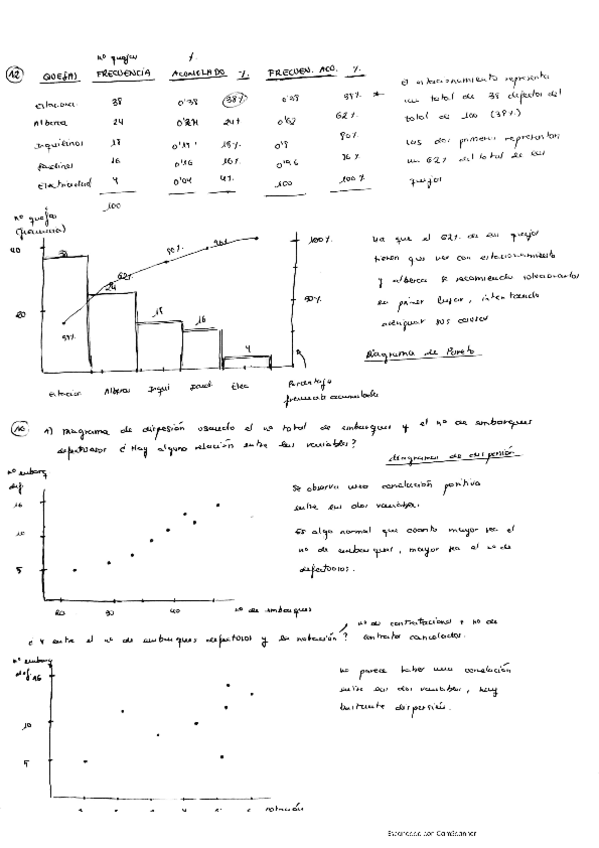 nº quejas %
12 QUEJAS FRECUENCIA ACUMULADO % FRECUEN. ACU. %
38 0'38 38% 0'38 38%
Alberca 24 0'24 24% 0'62 62%
Inquilinos 18 18% 0'8 80%
16 0'16 16%
Electricidad 4 0'04 4% 100 100%
100
El estacionamiento representa
un total de 38 defectos del
total de 100 (38%)
Las dos primeras representan
un 62% del total de las
quejas
nº quejas
(frecuencia)
40
20
38
24
18
16
4
38%
62%
80%
100%
50%
Estacion Alberca Inqui Elec
Porcentaje
frecuencia acumulada
Ya que el 62% de las quejas
tienen que ver con estacionamiento
y alberca se recomienda solucionarlos
en primer lugar, intentando
adecuar sus causas
Diagrama de Pareto
16 A) Diagrama de dispersión usando el nº total de embarques y el nº de embarques
defectuosos ¿Hay alguna relación entre las variables?
Diagrama de dispersión
nº embarq
def
10
5
20 30 40 nº de embarques
Se observa una correlación positiva
entre las dos variables.
Es algo normal que cuanto mayor sea el
nº de embarques, mayor sea el nº de
defectuosos.
nº de contrataciones + nº de
¿Y entre el nº de embarques defectuosos y la rotación? contratos cancelados.
nº embarq
def.
10
5
rotación
No parece haber una correlación
entre las dos variables, hay
bastante dispersión.
Escaneado con CamScanner